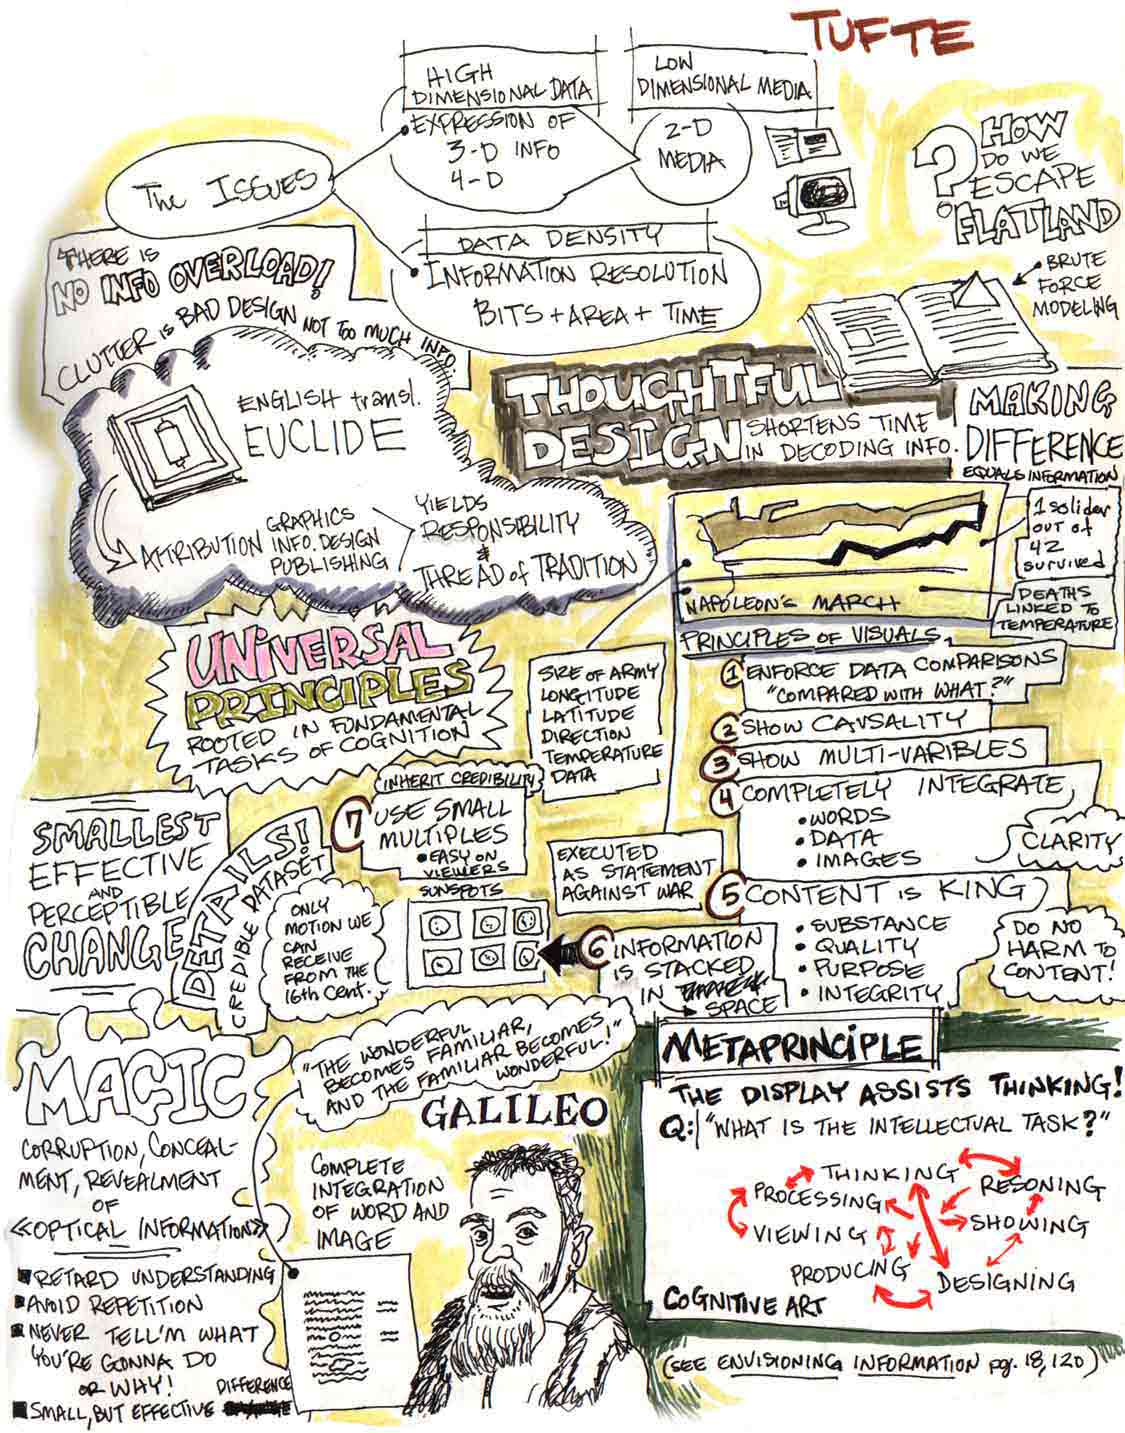 TUFTE
The ISSUES
HIGH
DIMENSIONAL DATA
• EXPRESSION OF
3-D INFO
4-D
LOW
DIMENSIONAL MEDIA
2-D
MEDIA
DATA DENSITY
• INFORMATION RESOLUTION
BITS + AREA + TIME
? HOW
DO WE
ESCAPE
FLATLAND
• BRUTE
FORCE
MODELING
THERE IS
NO INFO OVERLOAD!
CLUTTER is BAD DESIGN NOT TOO MUCH INFO
ENGLISH transl.
EUCLIDE
ATTRIBUTION
GRAPHICS
INFO. DESIGN
PUBLISHING
YIELDS
RESPONSIBILITY
&
THREAD of TRADITION
THOUGHTFUL
DESIGN
SHORTENS TIME
IN DECODING INFO.
MAKING
DIFFERENCE
EQUALS INFORMATION
1 solider
out of
42
survived
NAPOLEON'S MARCH
DEATHS
LINKED TO
TEMPERATURE
SIZE OF ARMY
LONGTITUDE
LATITUDE
DIRECTION
TEMPERATURE
DATA
UNIVERSAL
PRINCIPLES
ROOTED IN FUNDAMENTAL
TASKS OF COGNITION
PRINCIPLES OF VISUALS
1 ENFORCE DATA COMPARISONS
"COMPARED WITH WHAT?"
2 SHOW CAUSALITY
3 SHOW MULTI-VARIBLES
4 COMPLETELY INTEGRATE
• WORDS
• DATA
• IMAGES
CLARITY
5 CONTENT IS KING
• SUBSTANCE
• QUALITY
• PURPOSE
• INTEGRITY
DO NO
HARM TO
CONTENT!
EXECUTED
AS STATEMENT
AGAINST WAR
6 INFORMATION
IS STACKED
IN
SPACE
INHERIT CREDIBILITY
7 USE SMALL
MULTIPLES
• EASY ON
VIEWERS
SUNSPOTS
ONLY
MOTION WE
CAN
RECEIVE
FROM THE
16th CENT.
DETAILS!
CREDIBLE DATASET
SMALLEST
EFFECTIVE
AND
PERCEPTIBLE
CHANGE
MAGIC
CORRUPTION, CONCEAL-
MENT, REVEALMENT
OF
«OPTICAL INFORMATION»
■ RETARD UNDERSTANDING
■ AVOID REPETITION
■ NEVER TELL'M WHAT
YOU'RE GONNA DO
OR WHY!
DIFFERENCE
■ SMALL, BUT EFFECTIVE
"THE WONDERFUL
BECOMES FAMILIAR,
AND THE FAMILIAR BECOMES
WONDERFUL!"
GALILEO
COMPLETE
INTEGRATION
OF WORD AND
IMAGE
METAPRINCIPLE
THE DISPLAY ASSISTS THINKING!
Q: "WHAT IS THE INTELLECTUAL TASK?"
THINKING
RESONING
PROCESSING
SHOWING
VIEWING
PRODUCING
DESIGNING
COGNITIVE ART
(SEE ENVISIONING INFORMATION pg. 18, 120)